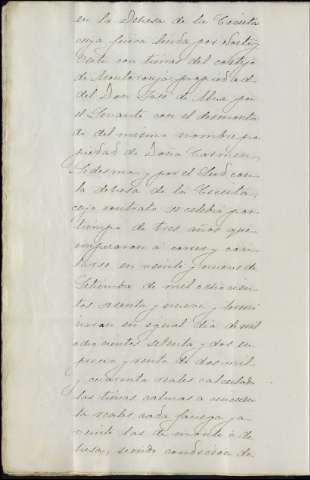 en la Dehesa de la Cecilia
cuya finca linda por Norte y
Oeste con tierras del cortijo
de propiedad
del Don José de Alva por
el Levante con el desmonte
do del mismo nombre pro
piedad de Doña Carmen
Ledesma, y por el Sud con
la dehesa de la
cuyo contrato se celebró por
tiempo de tres años que
empezaron á correr y con
tarse en veinte y nueve de
Setiembre de mil ochocien
tos sesenta y nueve y termi
naran en igual dia de mil
ochocientos setenta y dos en
precio y renta de dos mil
y cuarenta reales calculadas
las tierras calmas a
ta reales cada fanega y a
veinte las de monte o de
hesa, siendo condicion de